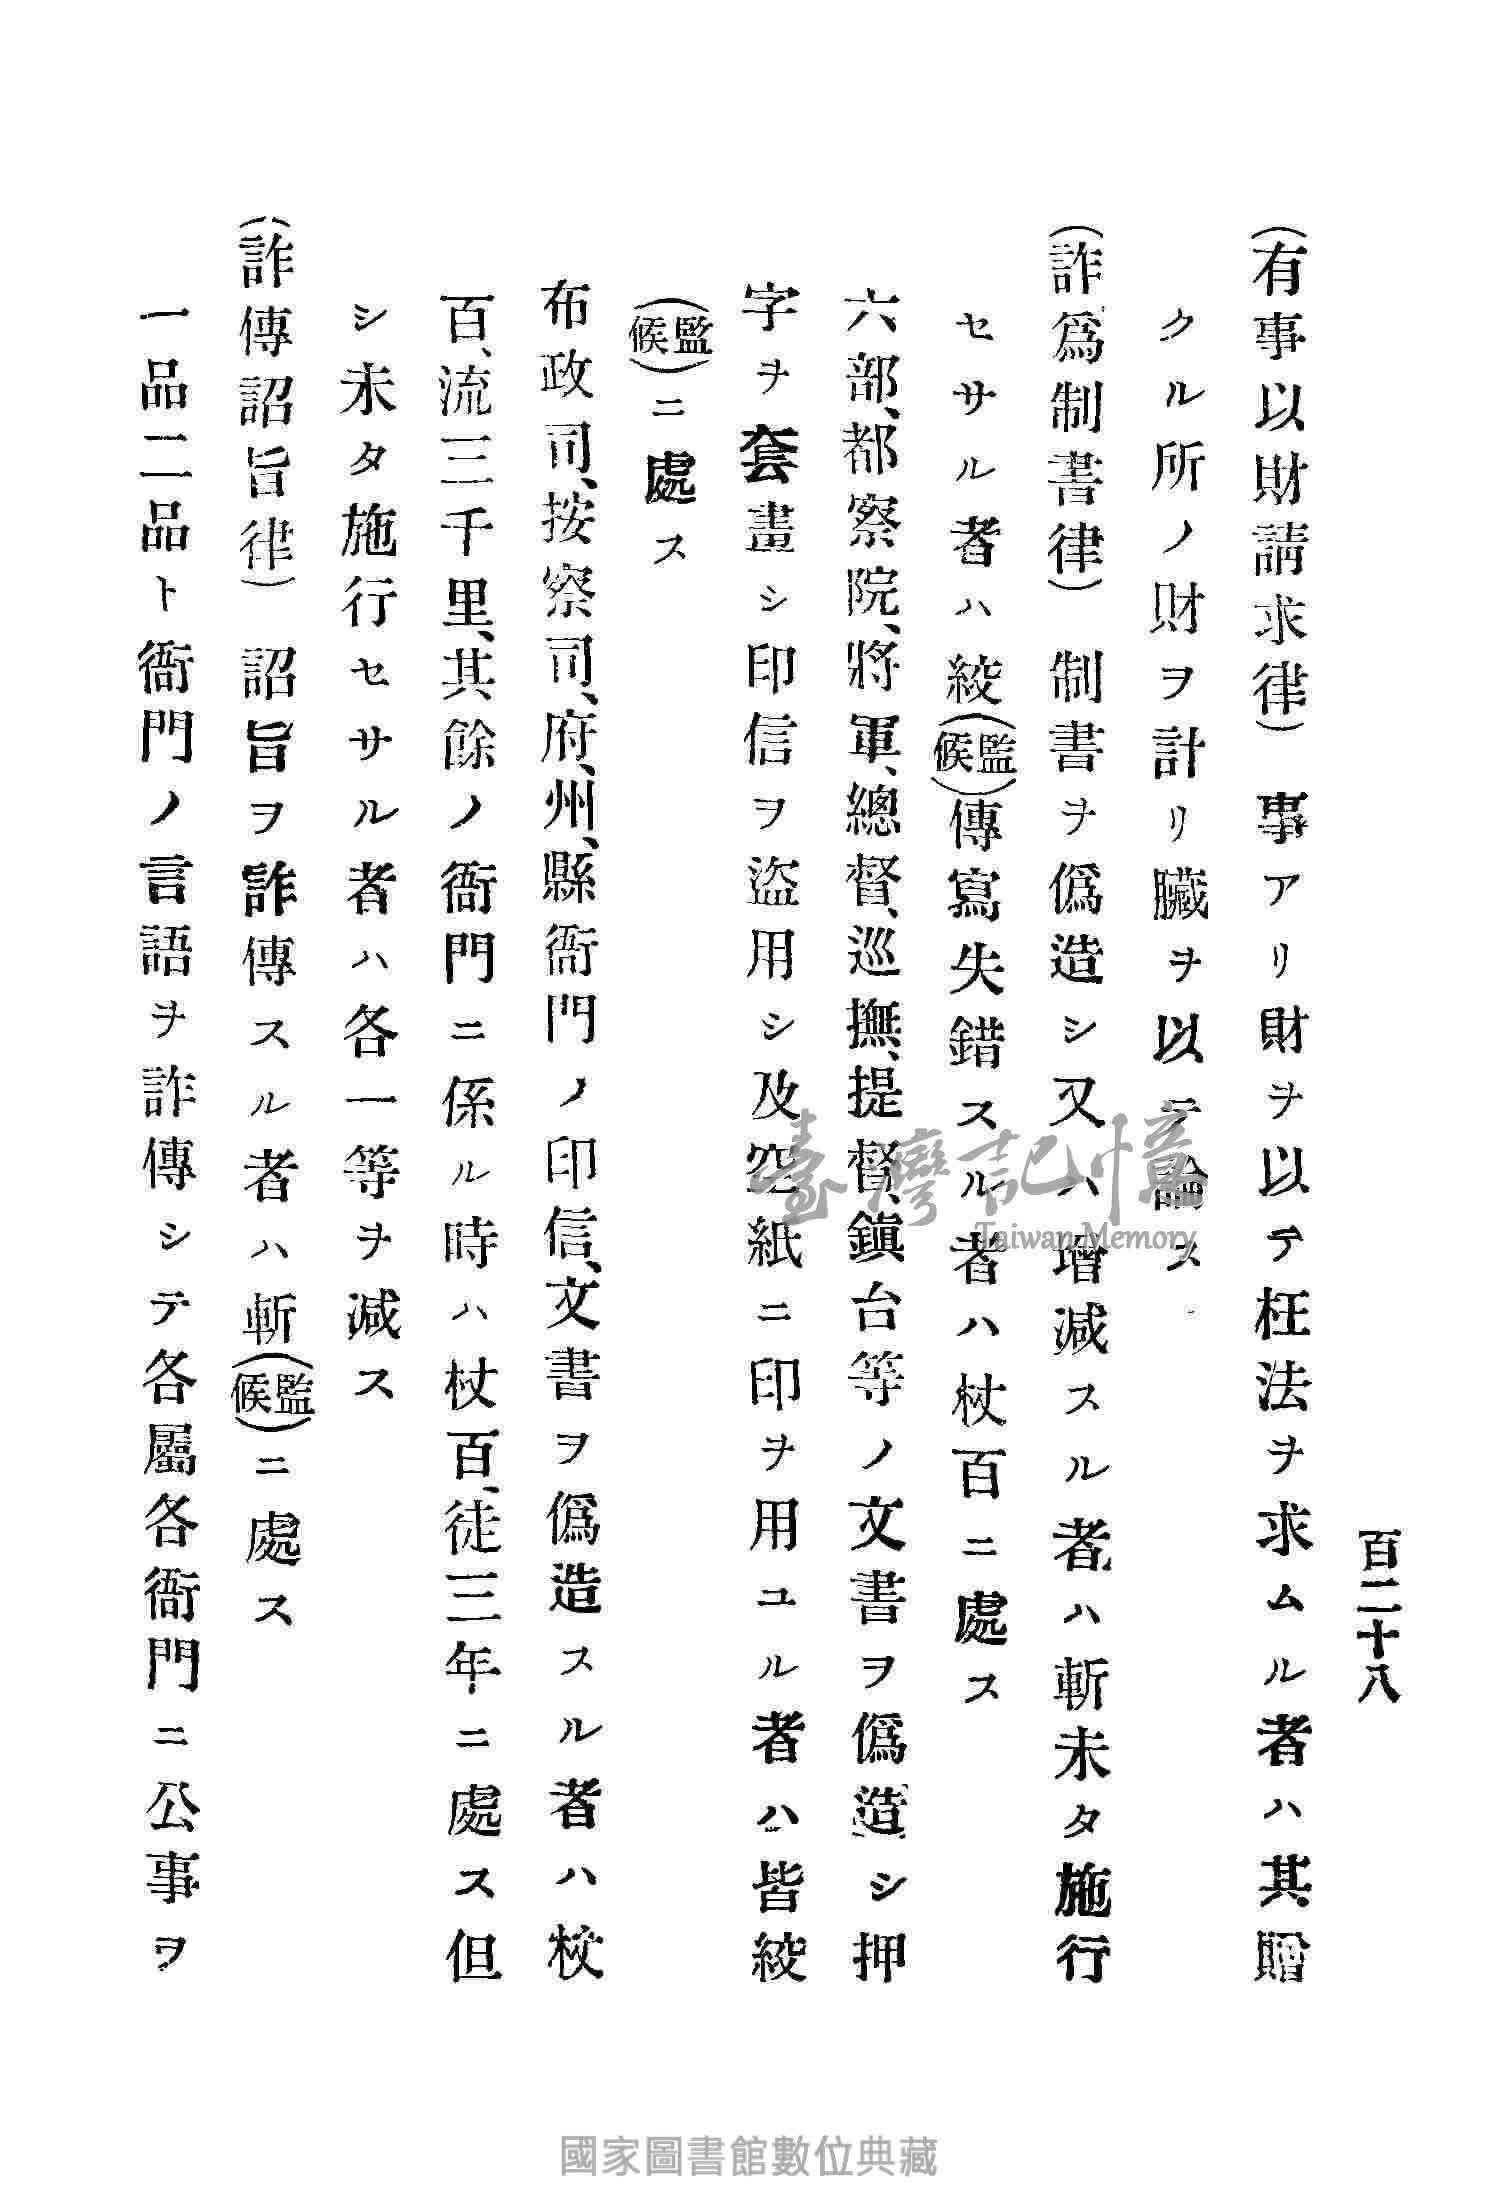 百二十八
(有事以財請求律)　事アリ財ヲ以テ枉法ヲ求ムル者ハ其贈
クル所ノ財ヲ計リ臟ヲ以テ論ス
(詐爲制書律)　制書ヲ僞造シ又ハ增減スル者ハ斬未タ施行
セサル者ハ絞(監候)傳寫失錯スル者ハ杖百ニ處ス
六部、都察院、將軍、總督、巡撫、提督、鎭台等ノ文書ヲ僞造シ押
字ヲ套畫シ印信ヲ盜用シ及空紙ニ印ヲ用ユル者ハ皆絞
(監候)ニ處ス
布政司、按察司、府、州、縣衙門ノ印信、文書ヲ僞造スル者ハ杖
百、流三千里、其餘ノ衙門ニ係ル時ハ杖百、徒三年ニ處ス但
シ未タ施行セサル者ハ各一等ヲ減ス
(詐傳詔旨律)　詔旨ヲ詐傳スル者ハ斬(監候)ニ處ス
一品二品ト衙門ノ言語ヲ詐傳シテ各屬各衙門ニ公事ヲ
臺灣記憶
Taiwan Memory
國家圖書館數位典藏